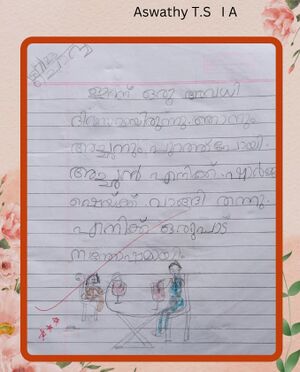 Aswathy T.S I A
ഇന്ന് ഒരു അവധി
ദിവസമായിരുന്നു. ഞാനും
അച്ഛനും പുറത്ത് പോയി.
അച്ഛൻ എനിക്ക് ഷാർജ
ഷെയ്ക്ക് വാങ്ങി തന്നു.
എനിക്ക് ഒരുപാട്
സന്തോഷമായി.